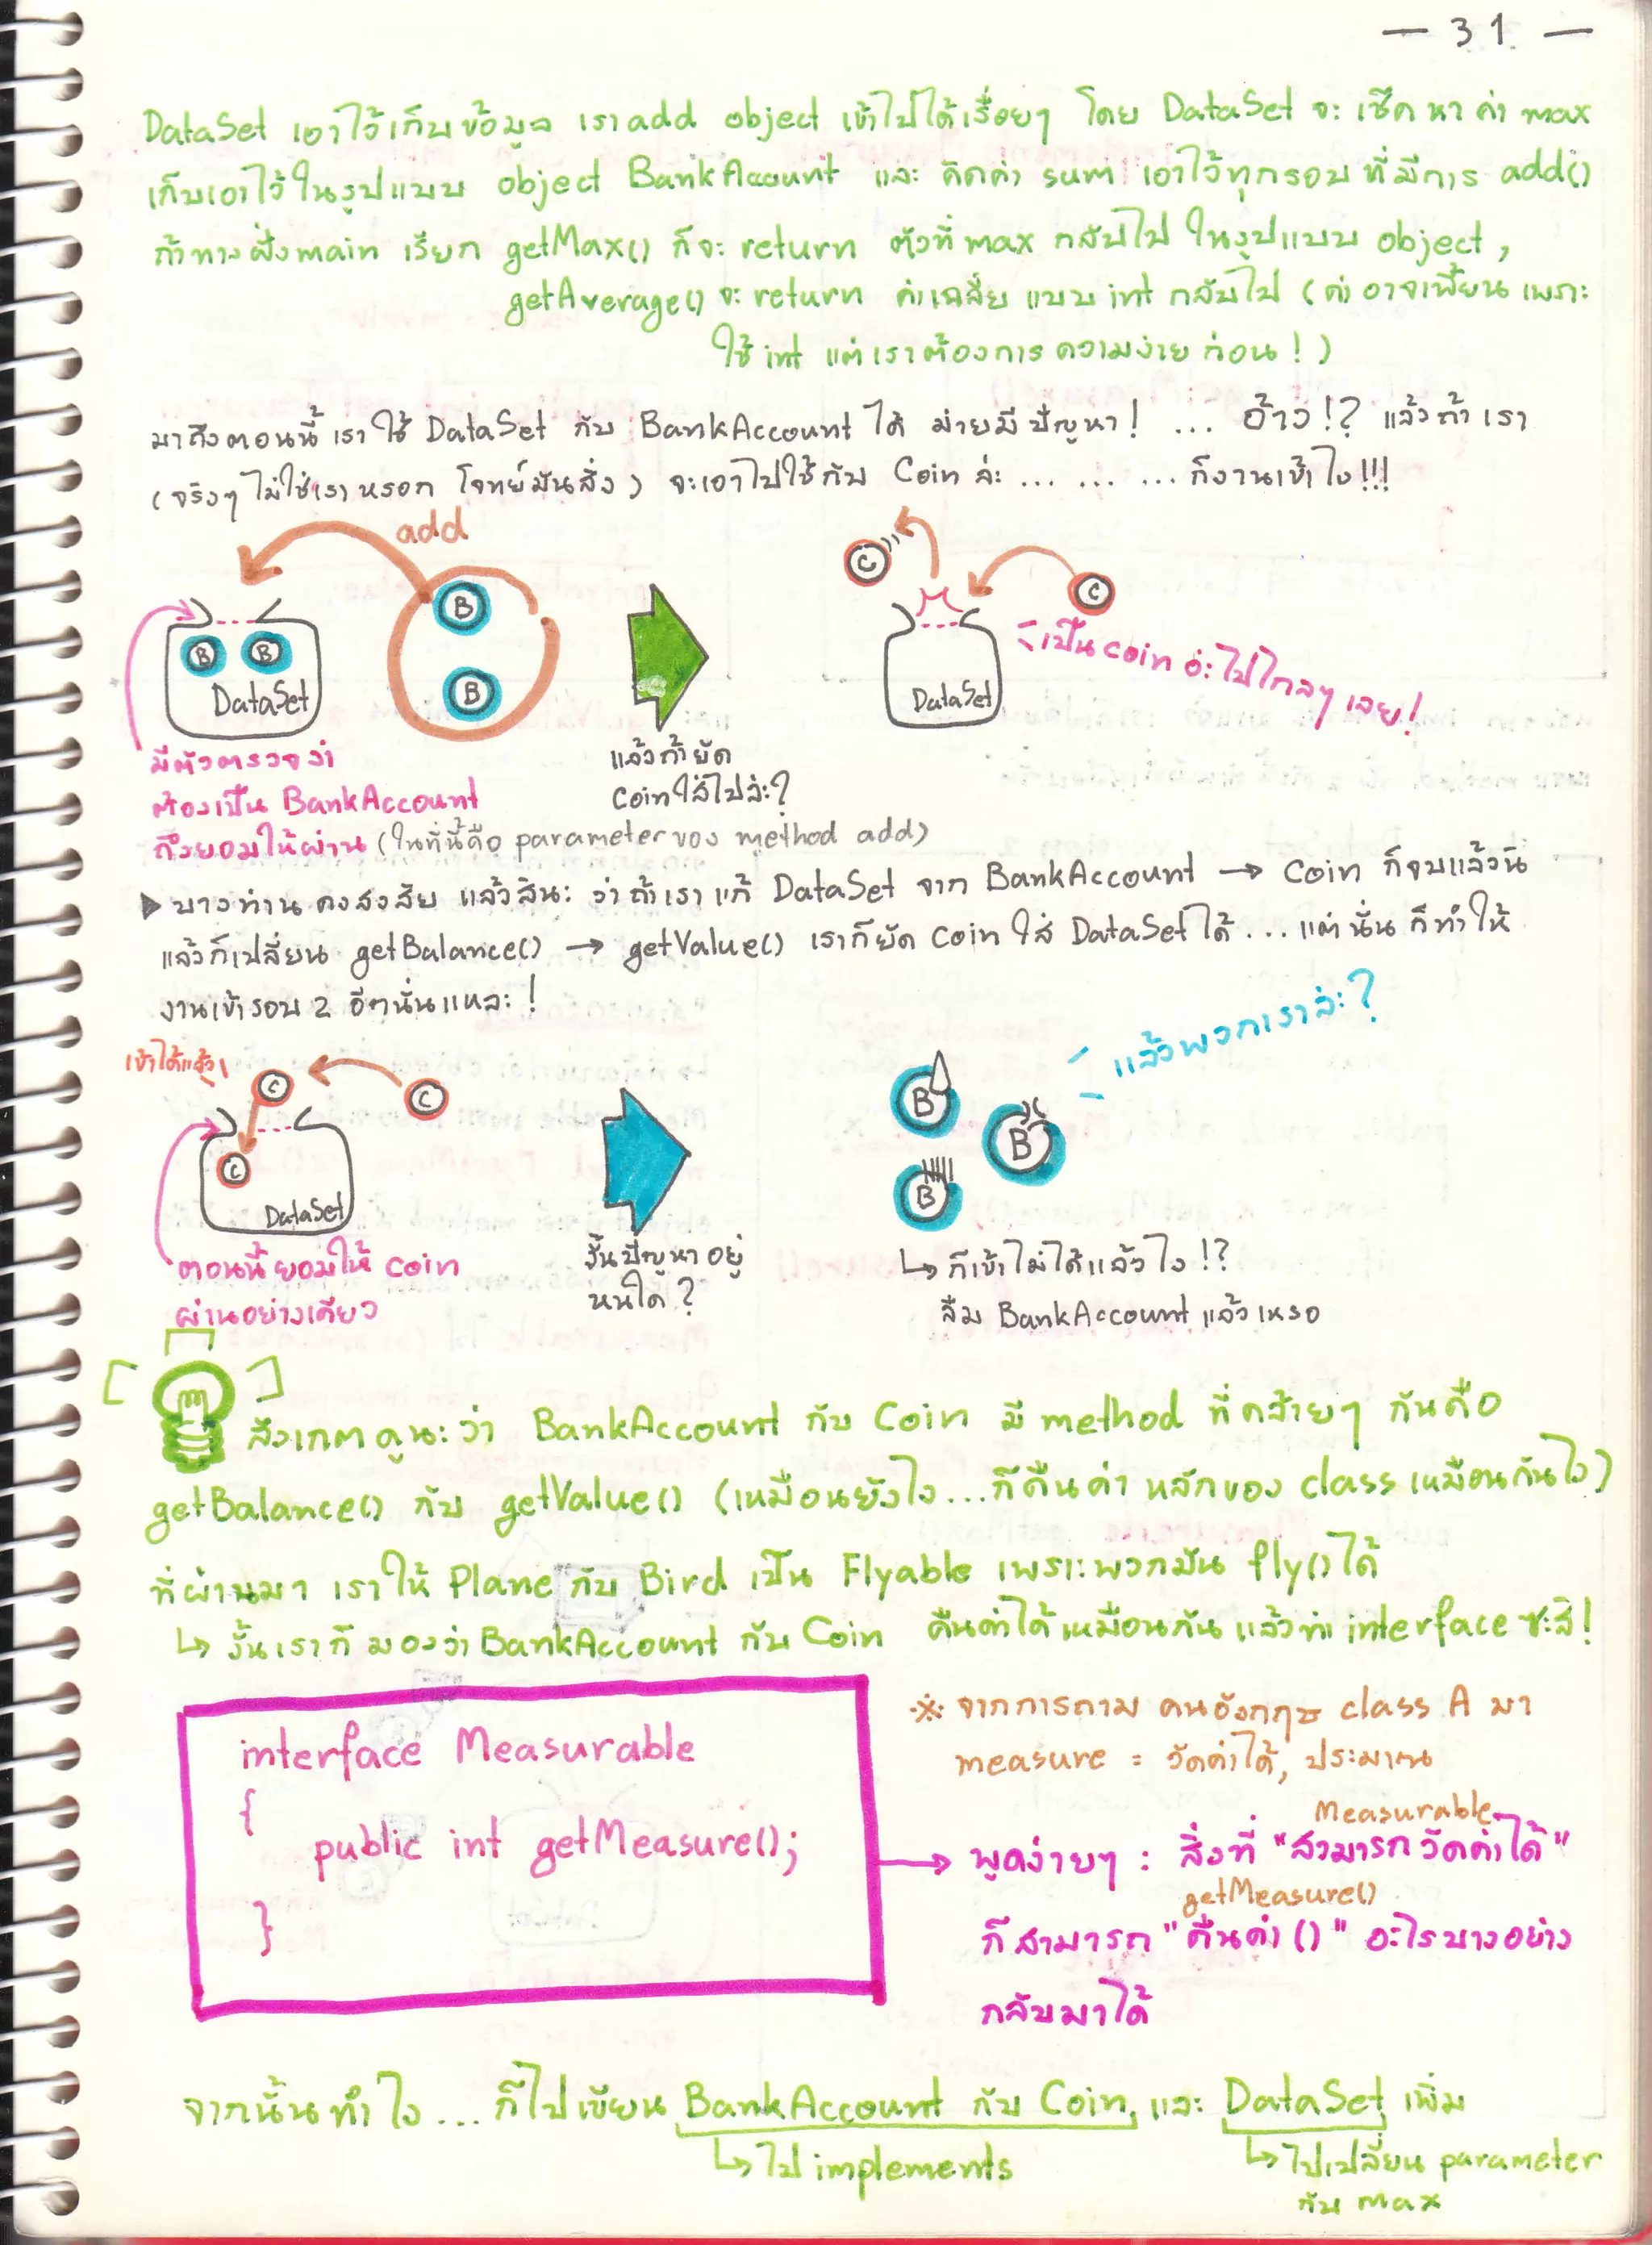 — 31 —
DataSet เอาไว้เก็บข้อมูล เรา add object เข้าไปได้เรื่อยๆ โดย DataSet จะเช็คหาค่า max
เก็บเอาไว้ในรูปแบบ object BankAccount และ คิดค่า sum เอาไว้ทุกรอบที่มีการ add()
ถ้าทางฝั่ง main เรียก getMax() ก็จะ return ตัวที่ max กลับไป ในรูปแบบ object,
getAverage() จะ return ค่าเฉลี่ย แบบ int กลับไป (ค่าอาจเพี้ยน เพราะ
ใช้ int แต่เราต้องการความง่ายก่อน!)
มาถึงตอนนี้ เราใช้ DataSet กับ BankAccount ได้ ม่ายมีปัญหา! ... อ้าว!? แล้วถ้าเรา
(จริงๆ ไม่ใช่เราหรอก โจทย์มันสั่ง) จะเอาไปใช้กับ Coin ล่ะ ... ... ... ก็งานเข้าไง!!!
add
B
B
B B
DataSet
C
C
DataSet
เป็น coin อ่ะ ไปไกลๆ เลย!
มีตัวตรวจว่า
ต้องเป็น BankAccount
ถึงยอมให้ผ่าน (ในที่นี้คือ parameter ของ method add)
แล้วถ้ายัด
Coin ใส่ไปล่ะ?
▶ บางท่านคงสงสัย แล้วสินะ ว่าถ้าเราแก้ DataSet จาก BankAccount → Coin ก็จบแล้วนิ
แล้วก็เปลี่ยน getBalance() → getValue() เราก็ยัด Coin ใส่ DataSet ได้ ... แต่นั่นก็ทำให้
งานเข้ารอบ 2 อีกนั่นแหละ!
เข้าได้แล้ว!
C
C
C
DataSet
ตอนนี้ยอมให้ coin
ผ่านอย่างเดียว
งั้นปัญหาอยู่
หนใด?
B
B
B
แล้วพวกเราล่ะ?
↳ ก็เข้าไม่ได้แล้วไง!?
ลืม BankAccount แล้วเหรอ
สังเกตดูนะว่า BankAccount กับ Coin มี method ที่คล้ายๆ กันคือ
getBalance() กับ getValue() (เหมือนยังไง...ก็คืนค่าหลักของ class เหมือนกันไง)
ที่ผ่านมา เราให้ Plane กับ Bird เป็น Flyable เพราะพวกมัน fly() ได้
↳ งั้นเราก็มองว่า BankAccount กับ Coin คืนค่าได้เหมือนกัน แล้วทำ interface ซะสิ!
interface Measurable
{
public int getMeasure();
}
※ จากการถาม คนอังกฤษ class A มา
measure = วัดค่าได้, ประมาณ
Measurable
→ พูดง่ายๆ : สิ่งที่ "สามารถวัดค่าได้"
getMeasure()
ก็สามารถ "คืนค่า ()" อะไรบางอย่าง
กลับมาได้
จากนั้นทำไง ... ก็ไปเขียน BankAccount กับ Coin และ DataSet เพิ่ม
↳ ไป implements
↳ ไปเปลี่ยน parameter
กับ max